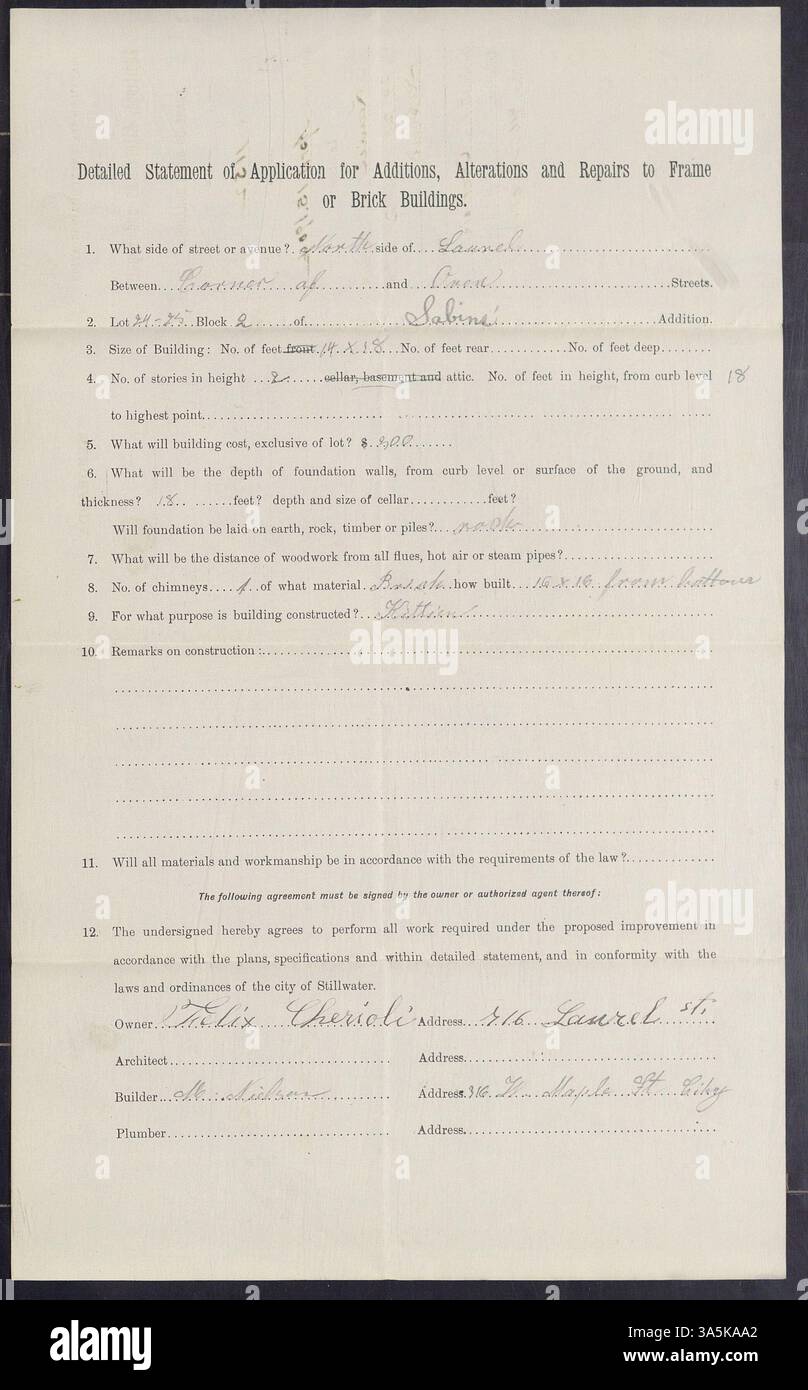 Detailed Statement of Application for Additions, Alterations and Repairs to Frame
or Brick Buildings.
1. What side of street or avenue? North side of Laurel
Between Cornor of and Owen Streets.
2. Lot 24-25 Block 2 of Sabins' Addition.
3. Size of Building: No. of feet front 14 x 18 No. of feet rear No. of feet deep
4. No. of stories in height 2 cellar, basement and attic. No. of feet in height, from curb level 18
to highest point
5. What will building cost, exclusive of lot? $ 200
6. What will be the depth of foundation walls, from curb level or surface of the ground, and
thickness? 18 feet? depth and size of cellar feet?
Will foundation be laid on earth, rock, timber or piles?
7. What will be the distance of woodwork from all flues, hot air or steam pipes?
8. No. of chimneys 1 of what material how built 16 x 16 from bottom
9. For what purpose is building constructed?
10. Remarks on construction:
11. Will all materials and workmanship be in accordance with the requirements of the law?
The following agreement must be signed by the owner or authorized agent thereof:
12. The undersigned hereby agrees to perform all work required under the proposed improvement in
accordance with the plans, specifications and within detailed statement, and in conformity with the
laws and ordinances of the city of Stillwater.
Owner Felix Cherioli Address 716 Laurel st.
Architect Address
Builder M. Nielson Address 316 W Maple St City
Plumber Address
alamy
alamy
Image ID: A35KAA2
www.alamy.com